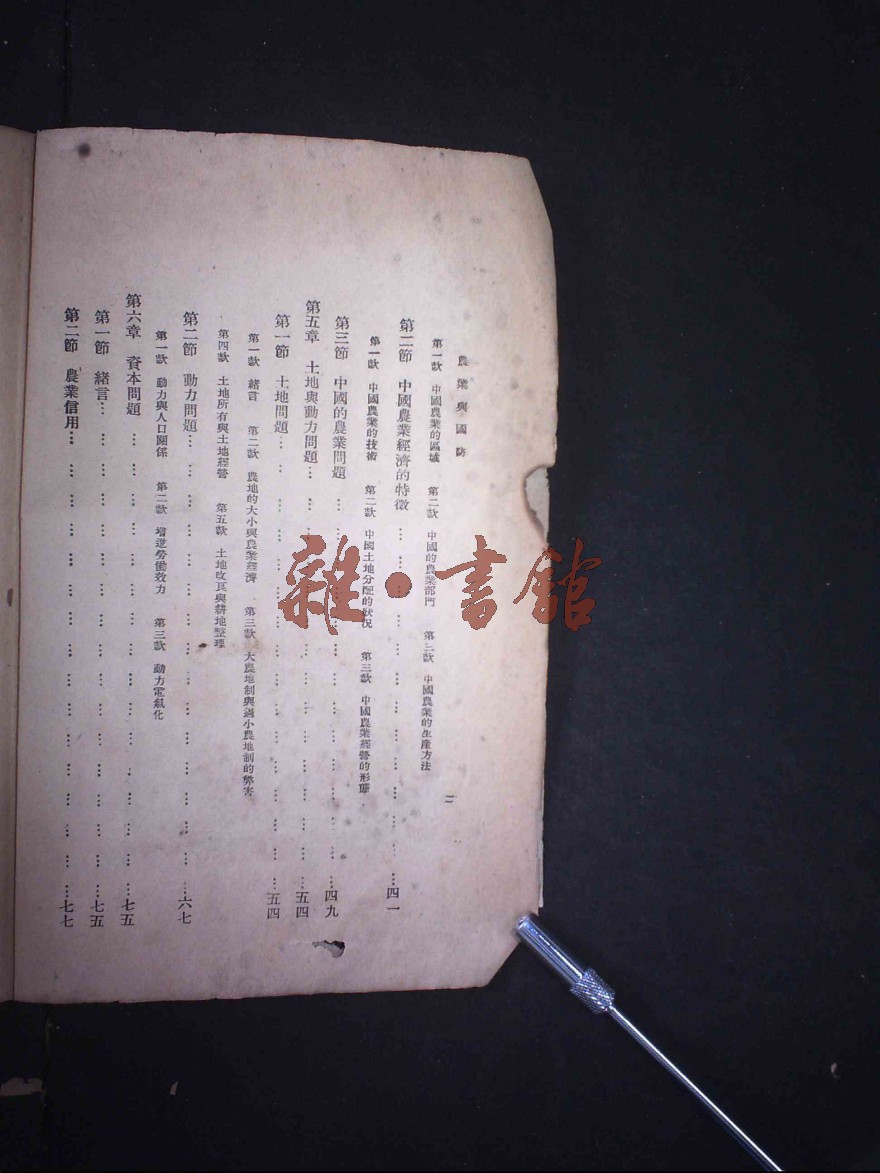 農業與國防
二
第一款 中國農業的區域 第二款 中國的農業部門 第三款 中國農業的生產方法
第二節 中國農業經濟的特徵……四一
第一款 中國農業的技術 第二款 中國土地分配的狀况 第三款 中國農業經營的形態
第三節 中國的農業問題……四九
第五章 土地與動力問題……五四
第一節 土地問題……五四
第一款 緒言 第二款 農地的大小與農業經濟 第三款 大農地制與過小農地制的弊害
第四款 土地所有與土地經營 第五款 土地改良與耕地整理
第二節 動力問題……六七
第一款 動力與人口關係 第二款 增進勞働效力 第三款 動力電氣化
第六章 資本問題……七五
第一節 緒言……七五
第二節 農業信用……七七
雜·書館